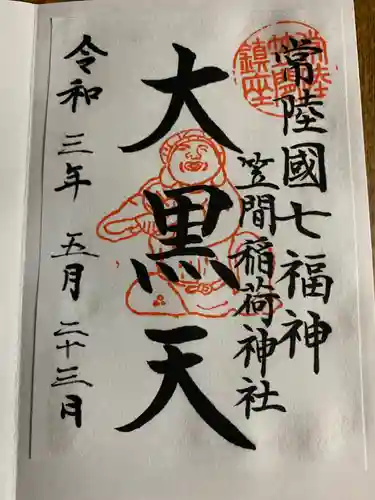 常陸國七福神
笠間稲荷神社
大黒天
令和三年五月二十三月
常陸
笠間
鎮座